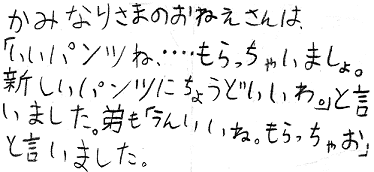 かみなりさまのおねえさんは、
「いいパンツね、‥‥もらっちゃいましょ。
新しいパンツにちょうどいいわ。」と言
いました。弟も「うんいいね。もらっちゃお」
と言いました。